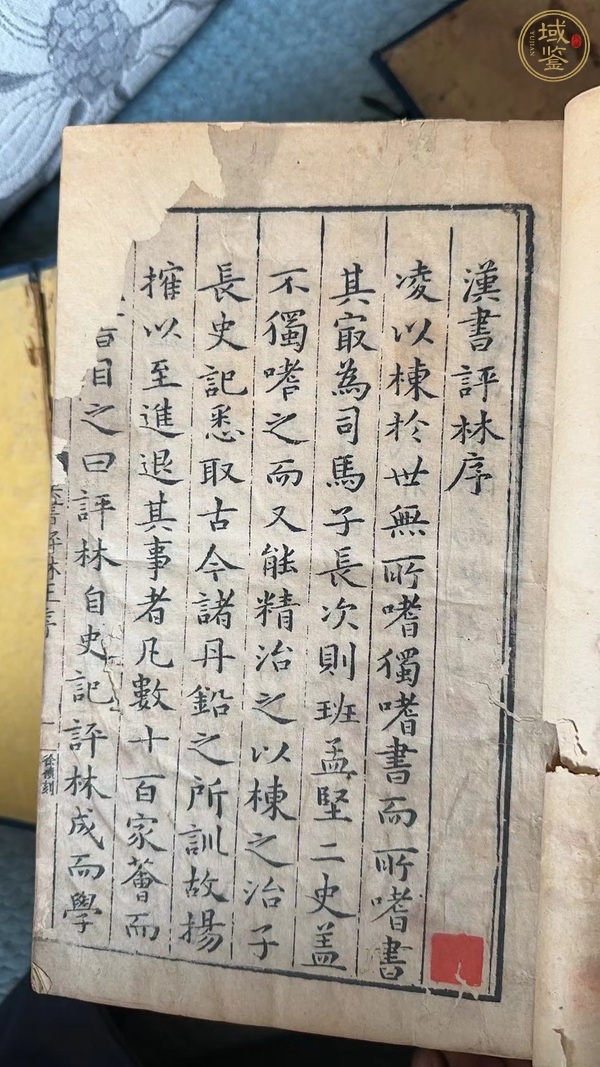 漢書評林序
凌以棟於世無所嗜獨嗜書而所嗜書
其㝡為司馬子長次則班孟堅二史盖
不獨嗜之而又能精治之以棟之治子
長史記悉取古今諸丹鉛之所訓故揚
搉以至進退其事者凡數十百家薈而
目之曰評林自史記評林成而學
漢書評林王序
徐禎刻
域鉴
YUJIAN